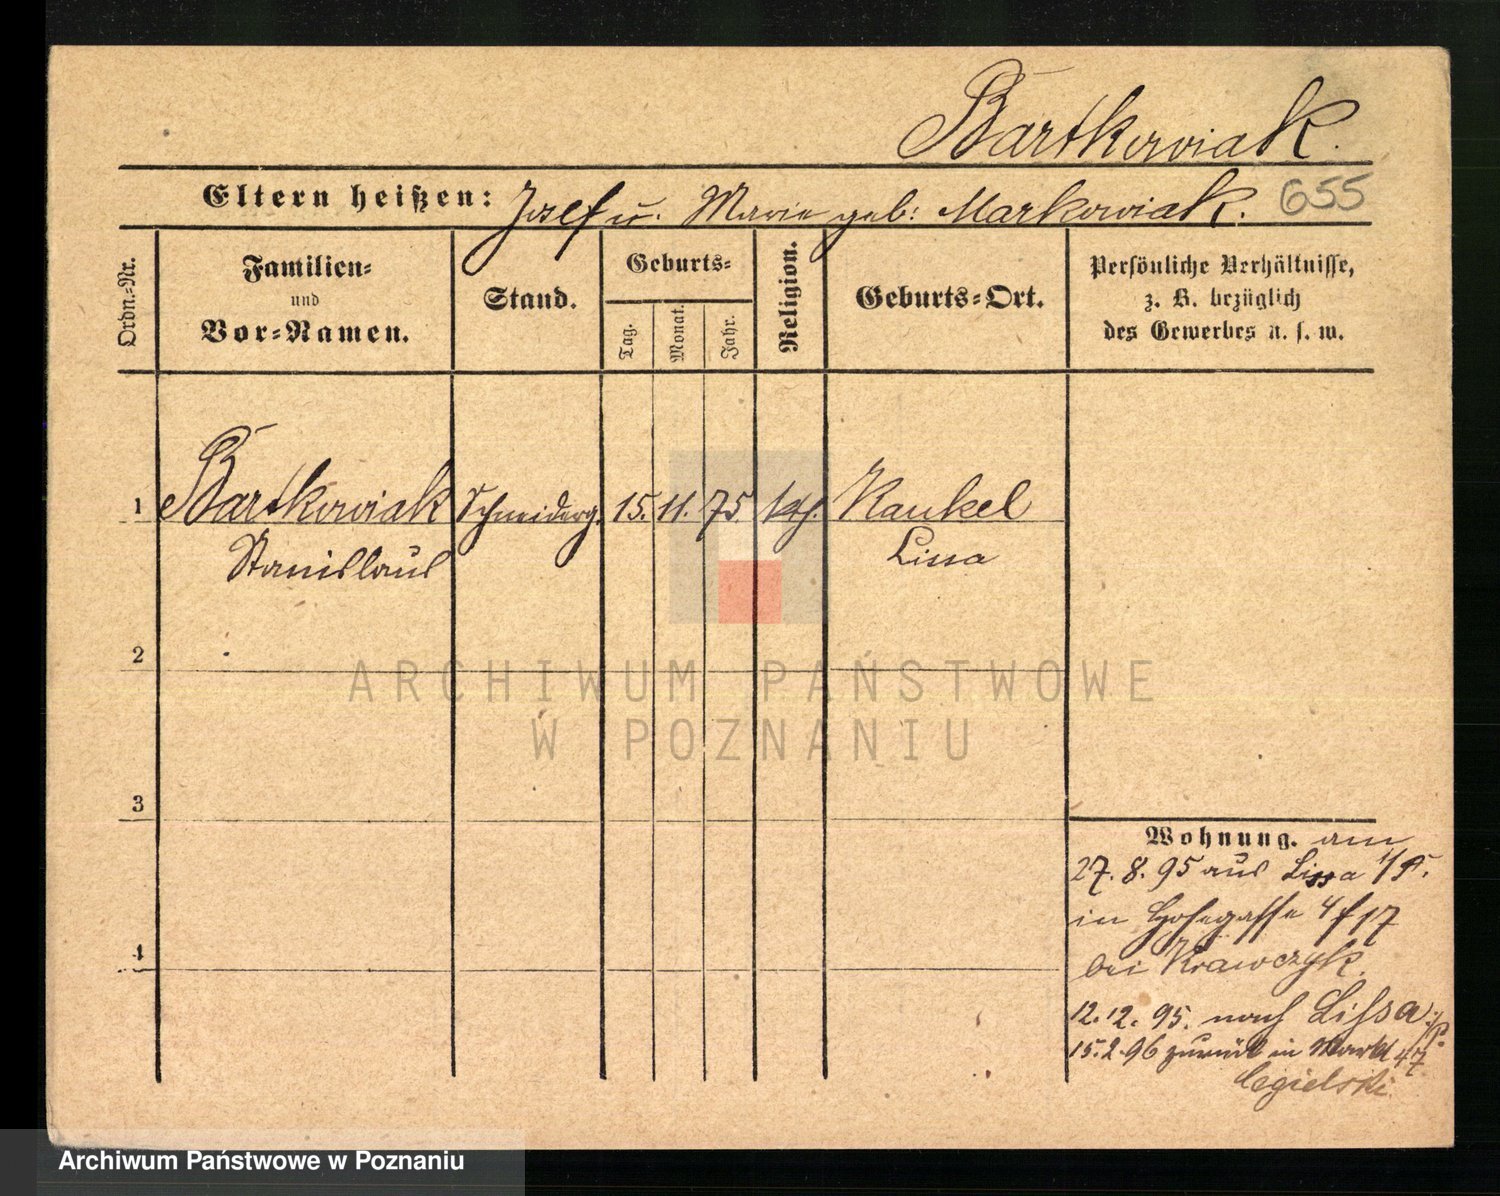 Bartkowiak.
Eltern heißen: Josef u. Marie geb: Markowiak. 655
Ordn.-Nr.
Familien-
und
Vor-Namen.
Stand.
Geburts-
Tag.
Monat.
Jahr.
Religion.
Geburts-Ort.
Persönliche Verhältnisse,
z. B. bezüglich
des Gewerbes u. s. w.
1 Bartkowiak Schneiderg. 15. 11. 75. kth. Kankel
Stanislaus Lissa
2
3
4
Wohnung. am
27. 8. 95 aus Lissa i/P.
in 4/17
bei Krawczyk.
12. 12. 95. nach Lissa i/P.
15. 2. 96 zurück in Markt 47
Cegielski
ARCHIWUM PAŃSTWOWE
W POZNANIU
Archiwum Państwowe w Poznaniu